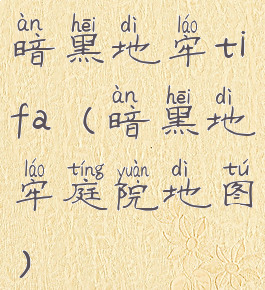 àn hēi dì láo
暗黑地牢ti
àn hēi dì
fa（暗黑地
láo tíng yuàn dì tú
牢庭院地图
）